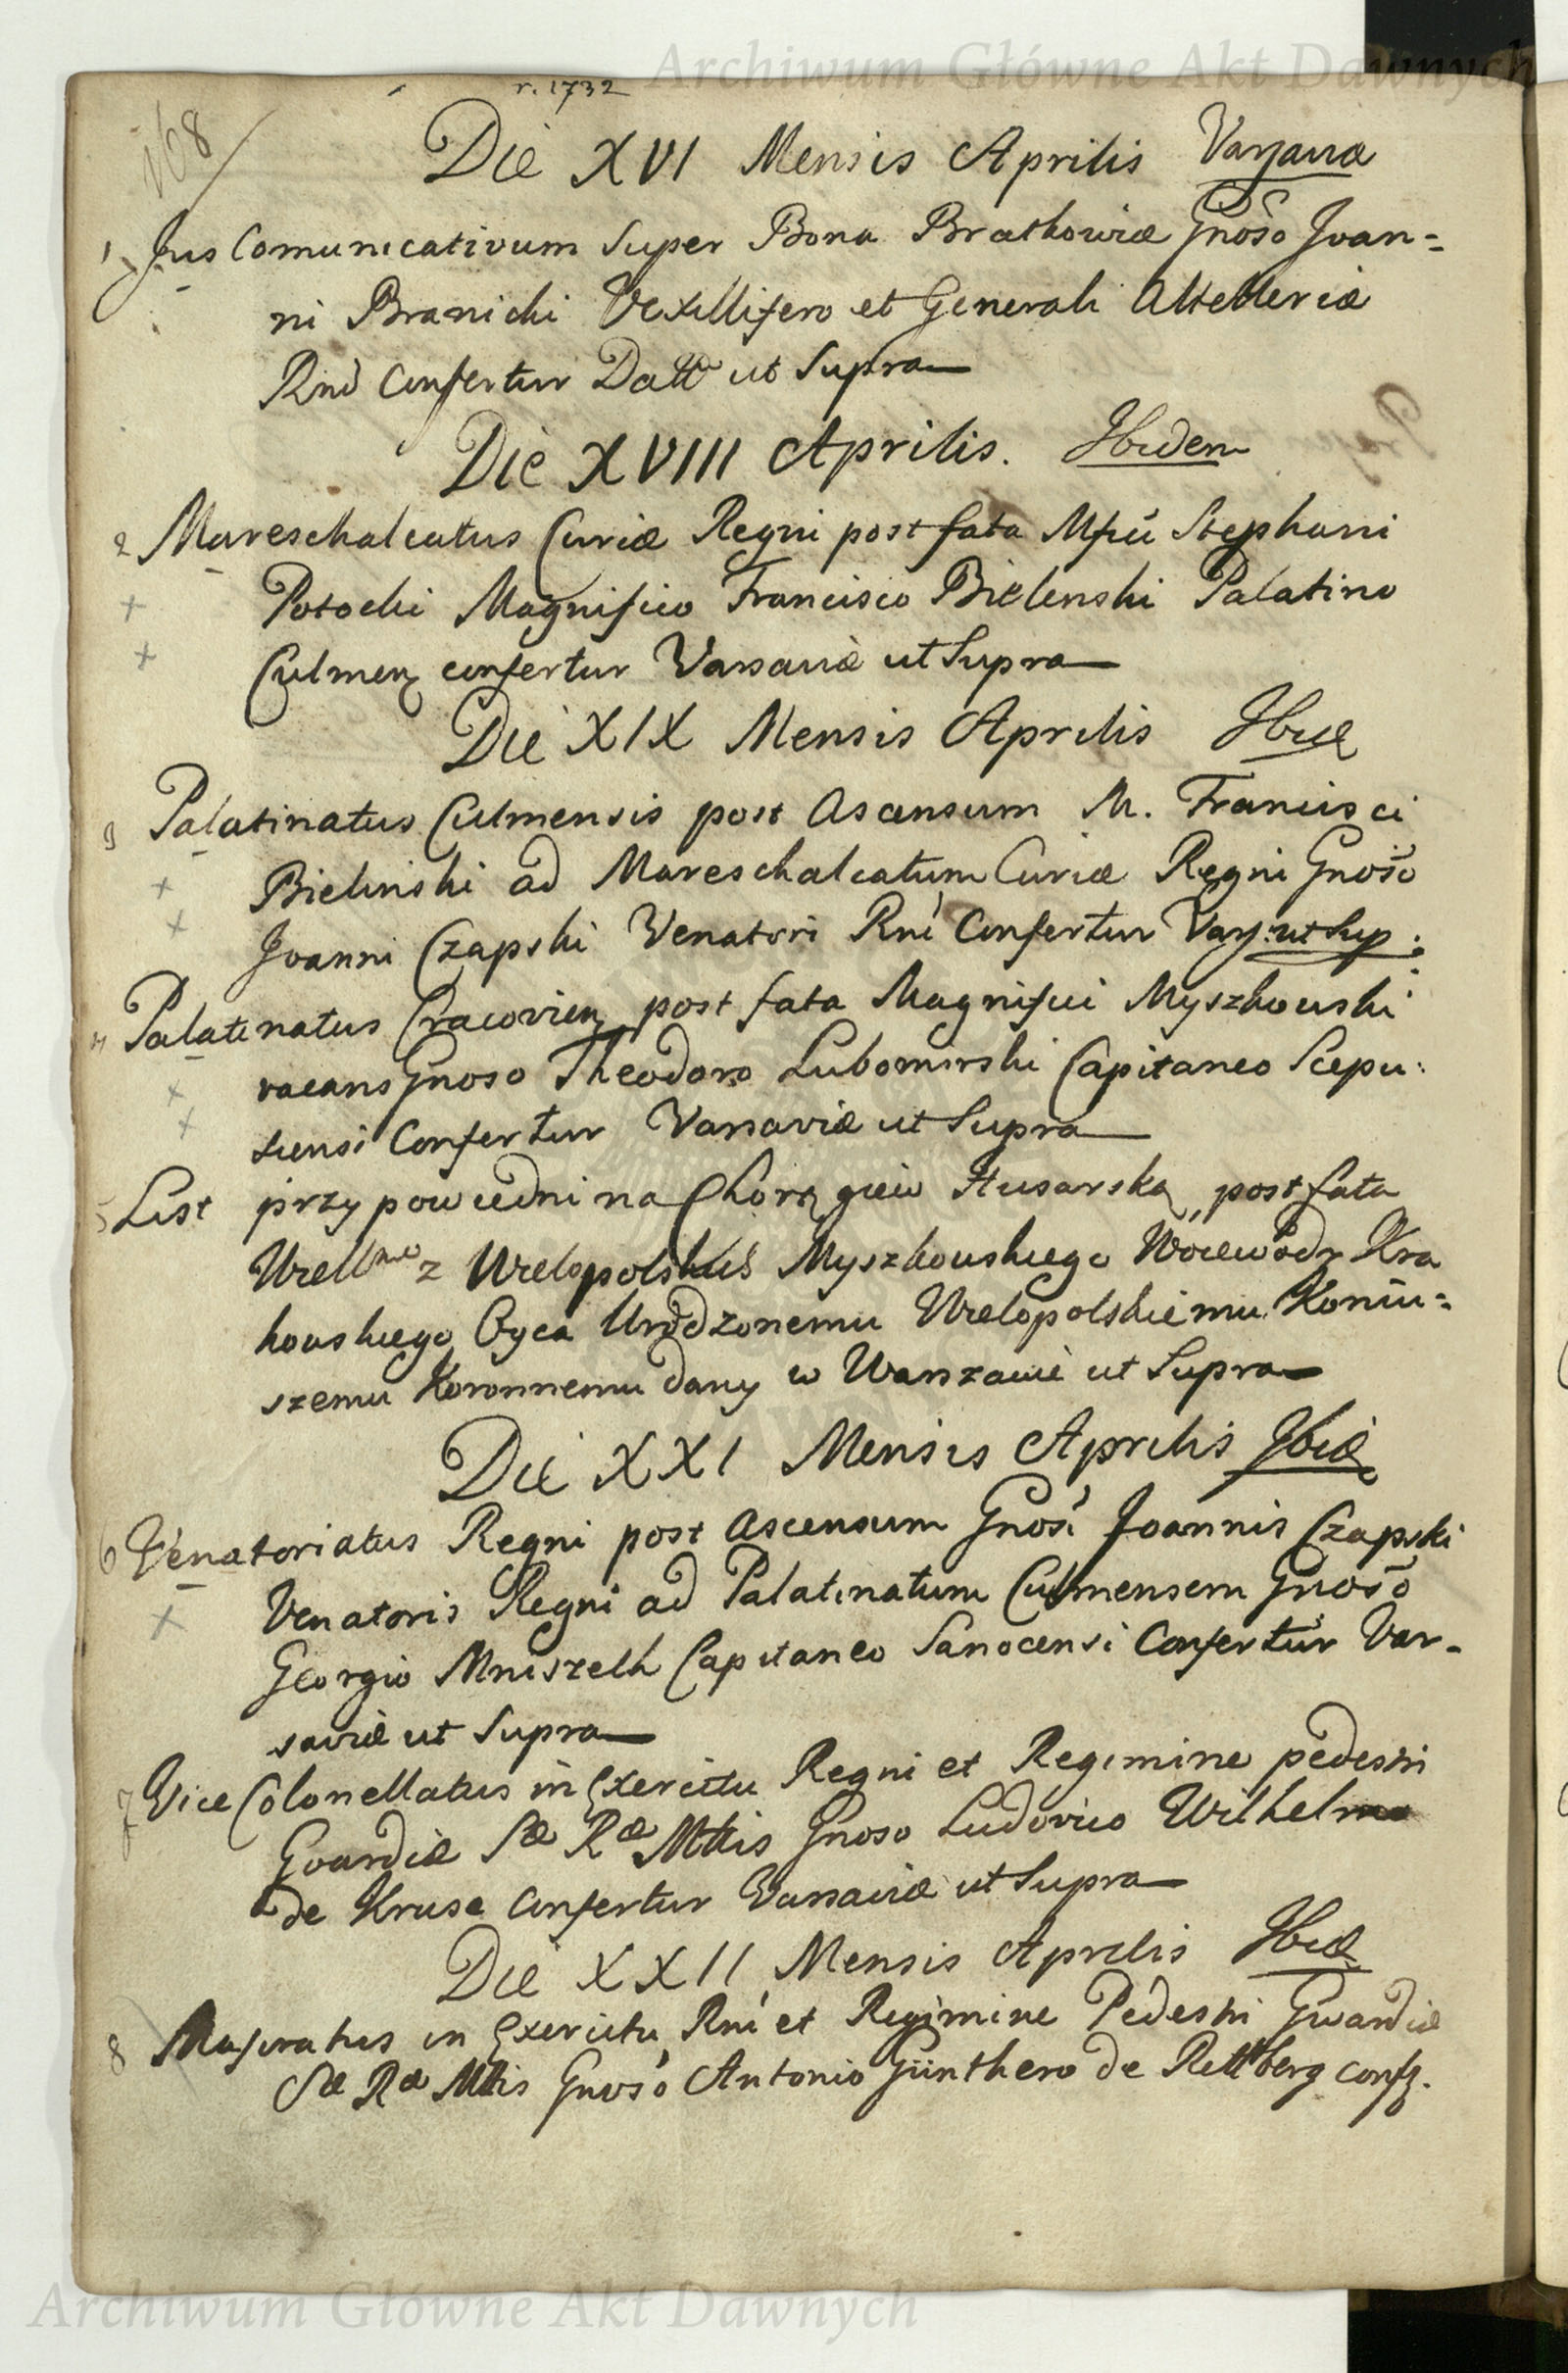 Archiwum Główne Akt Dawnych
r. 1732
168
Die XVI Mensis Aprilis
1 Jus Comunicativum Super Bona Bratkowice Gnoso Joan=
ni Branicki Vexillifero et Generali Altelleriæ
Rni Confertur ut Supra
Die XVIII Aprilis. Ibidem
2 Mareschalcatus Curiæ Regni post fata Stephani
Potocki Magnifico Francisco Bielenski Palatino
Culmen confertur Varsaviæ ut Supra
Die XIX Mensis Aprilis Ibid
3 Palatinatus Culmensis post Ascensum M. Francisci
Bielinski ad Mareschalcatum Curiæ Regni Gnoso
Joanni Czapski Venatori Rni Confertur Vars: ut Sup:
4 Palatinatus Cracovien post fata Magnifici Myszkowski
vacans Gnoso Theodoro Lubomirski Capitaneo Scepu:
siensi Confertur Varsaviæ ut Supra
5 List przypowiedni na Chorągiew Husarską post fata
z Myszkowskiego Woiewody Kra
kowskiego Oyca Urodzonemu Wielopolskiemu Koniu=
szemu Koronnemu dany w Warszawie ut Supra
Die XXI Mensis Aprilis Ibid
6 Venatoriatus Regni post Ascensum Gnosi Joannis Czapski
Venatoris Regni ad Palatinatum Culmensem Gnoso
Georgio Mniszech Capitaneo Sanocensi Confertur Var-
saviæ ut Supra
7 Vice Colonellatus in Exercitu Regni et Regimine pedestri
Gvardiæ Sæ Ræ Mttis Gnoso Ludovico Wilhelmo
de Kruse Confertur Varsaviæ ut Supra
Die XXII Mensis Aprilis Ibid
8 Majoratus in Exercitu Rni et Regimine Pedestri Gwardiæ
Sæ Ræ Mttis Gnoso Antonio Günthero de Rettberg conf.
Archiwum Główne Akt Dawnych